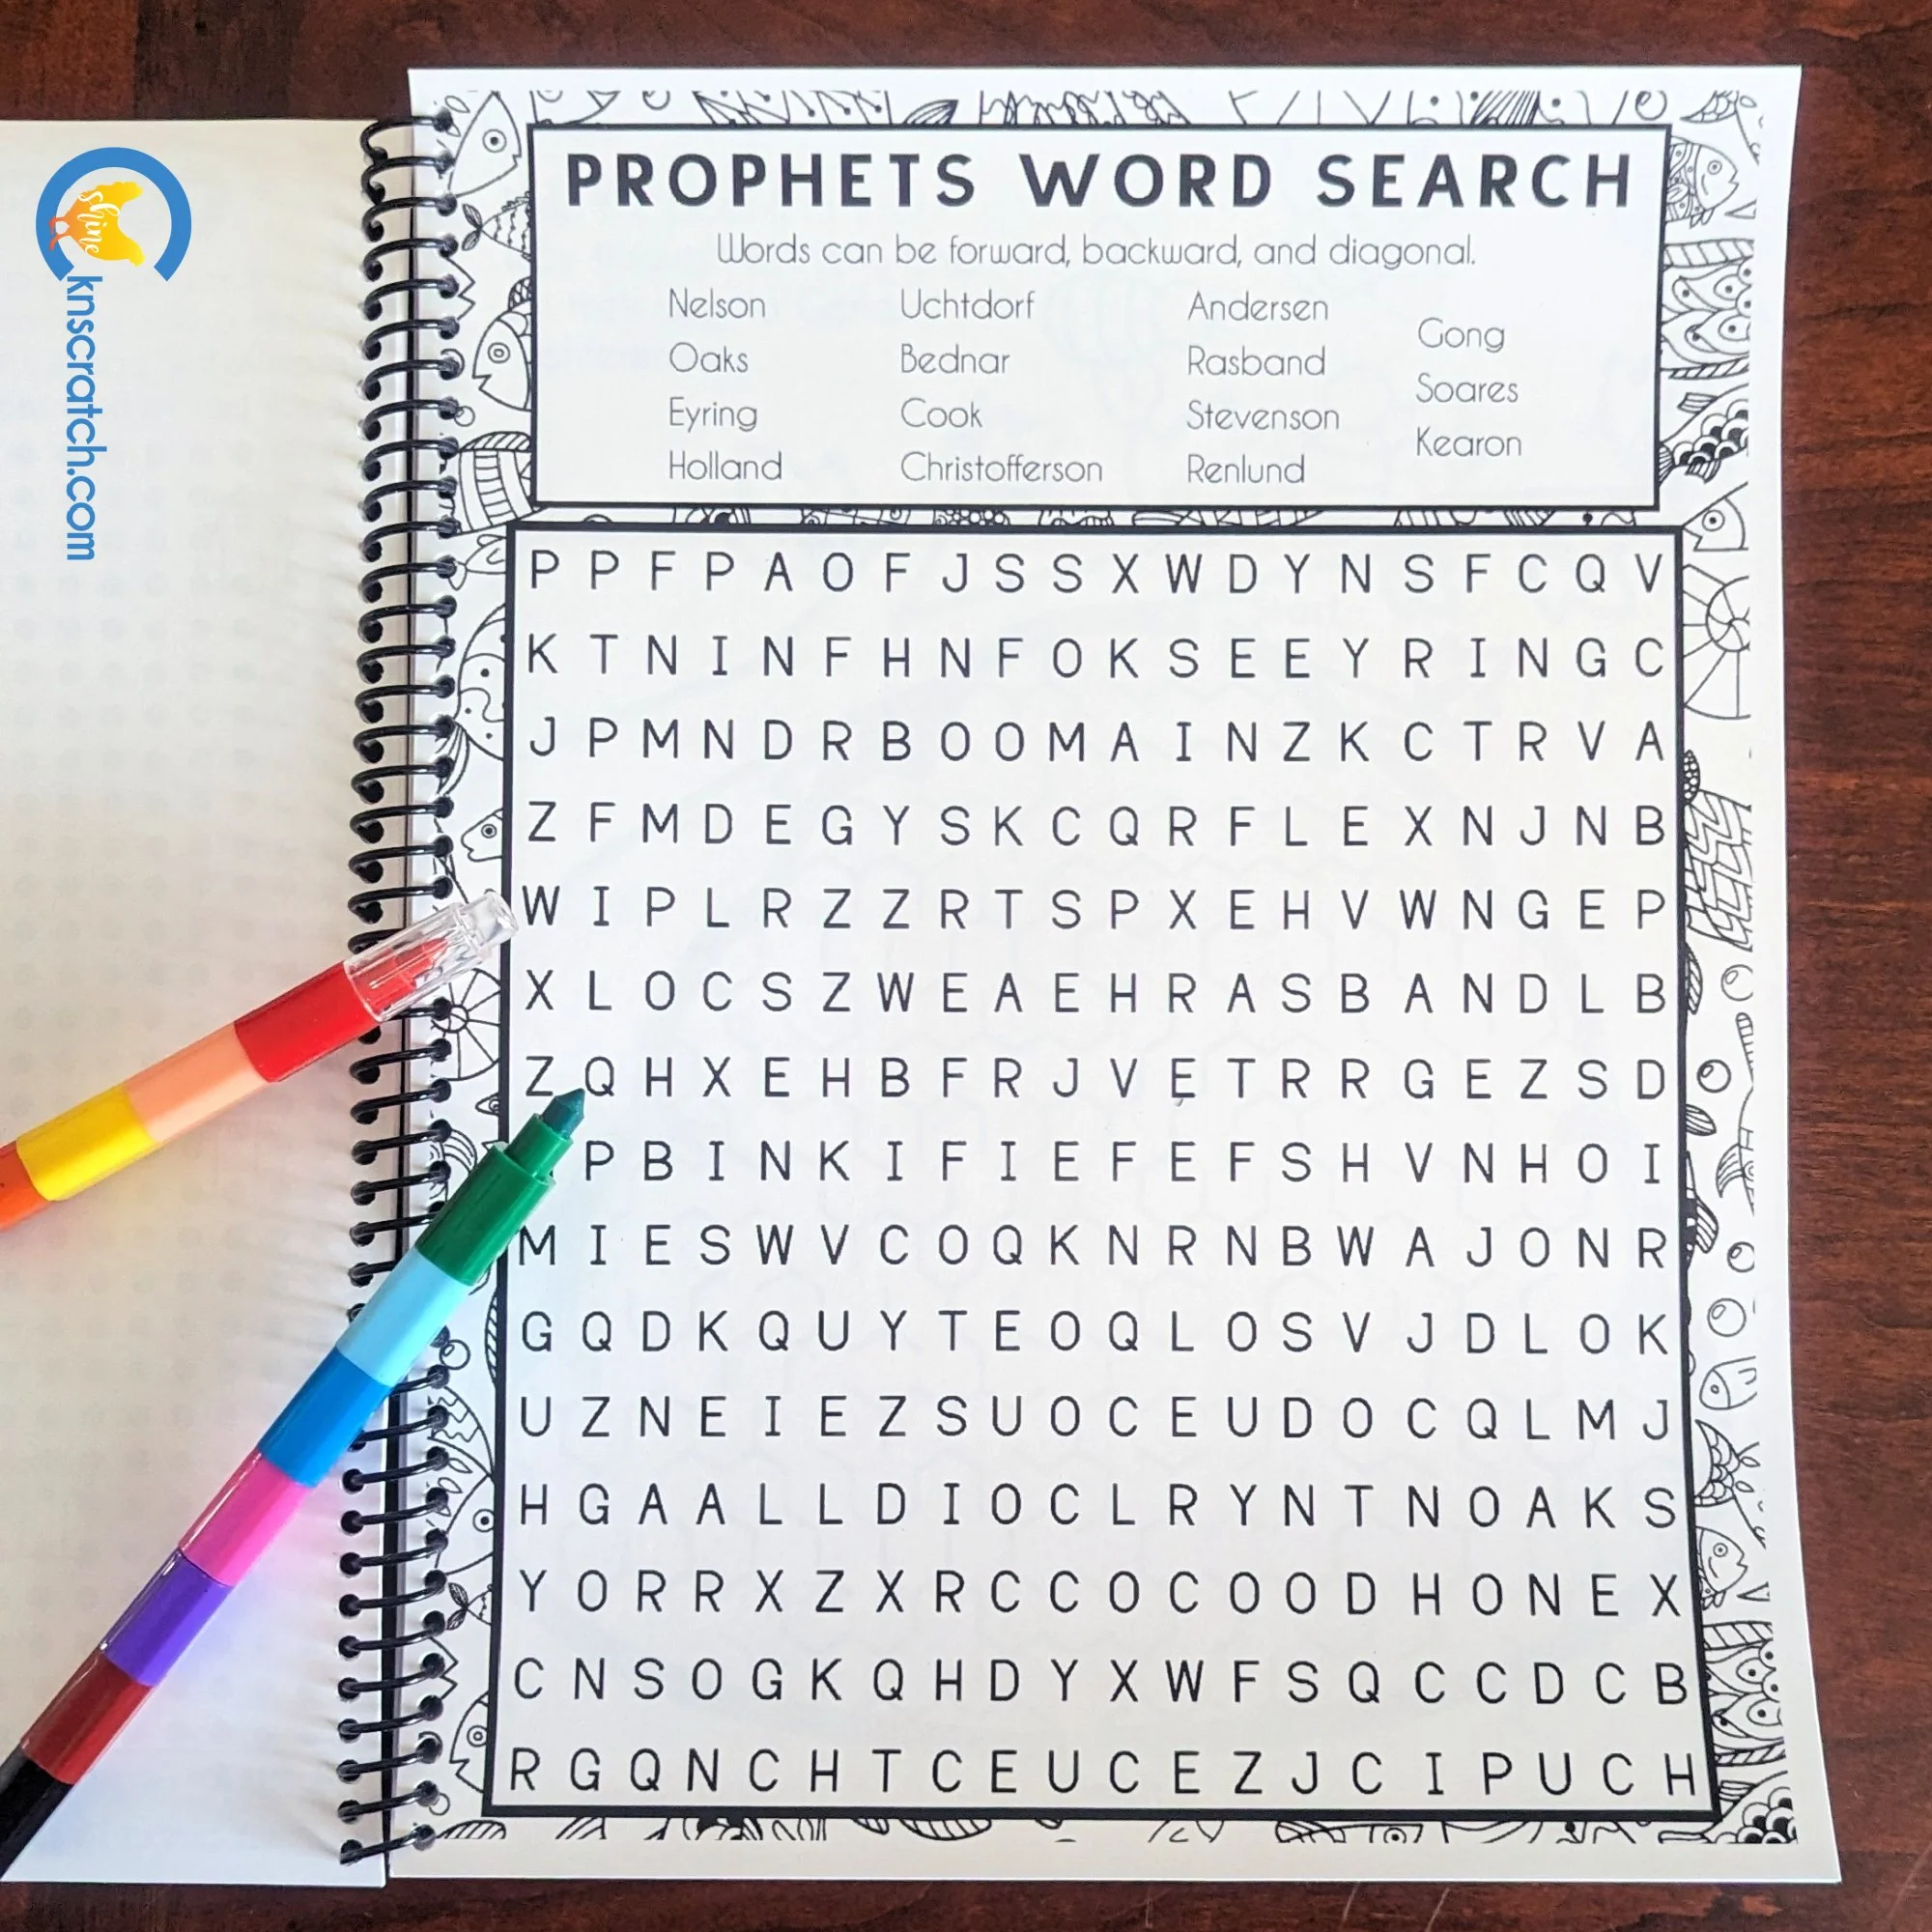 shine
knscratch.com
PROPHETS WORD SEARCH
Words can be forward, backward, and diagonal.
Nelson Uchtdorf Andersen
Gong
Oaks Bednar Rasband
Soares
Eyring Cook Stevenson
Kearon
Holland Christofferson Renlund
P P F P A O F J S S X W D Y N S F C Q V
K T N I N F H N F O K S E E Y R I N G C
J P M N D R B O O M A I N Z K C T R V A
Z F M D E G Y S K C Q R F L E X N J N B
W I P L R Z Z R T S P X E H V W N G E P
X L O C S Z W E A E H R A S B A N D L B
Z Q H X E H B F R J V E T R R G E Z S D
P B I N K I F I E F E F S H V N H O I
M I E S W V C O Q K N R N B W A J O N R
G Q D K Q U Y T E O Q L O S V J D L O K
U Z N E I E Z S U O C E U D O C Q L M J
H G A A L L D I O C L R Y N T N O A K S
Y O R R X Z X R C C O C O O D H O N E X
C N S O G K Q H D Y X W F S Q C C D C B
R G Q N C H T C E U C E Z J C I P U C H